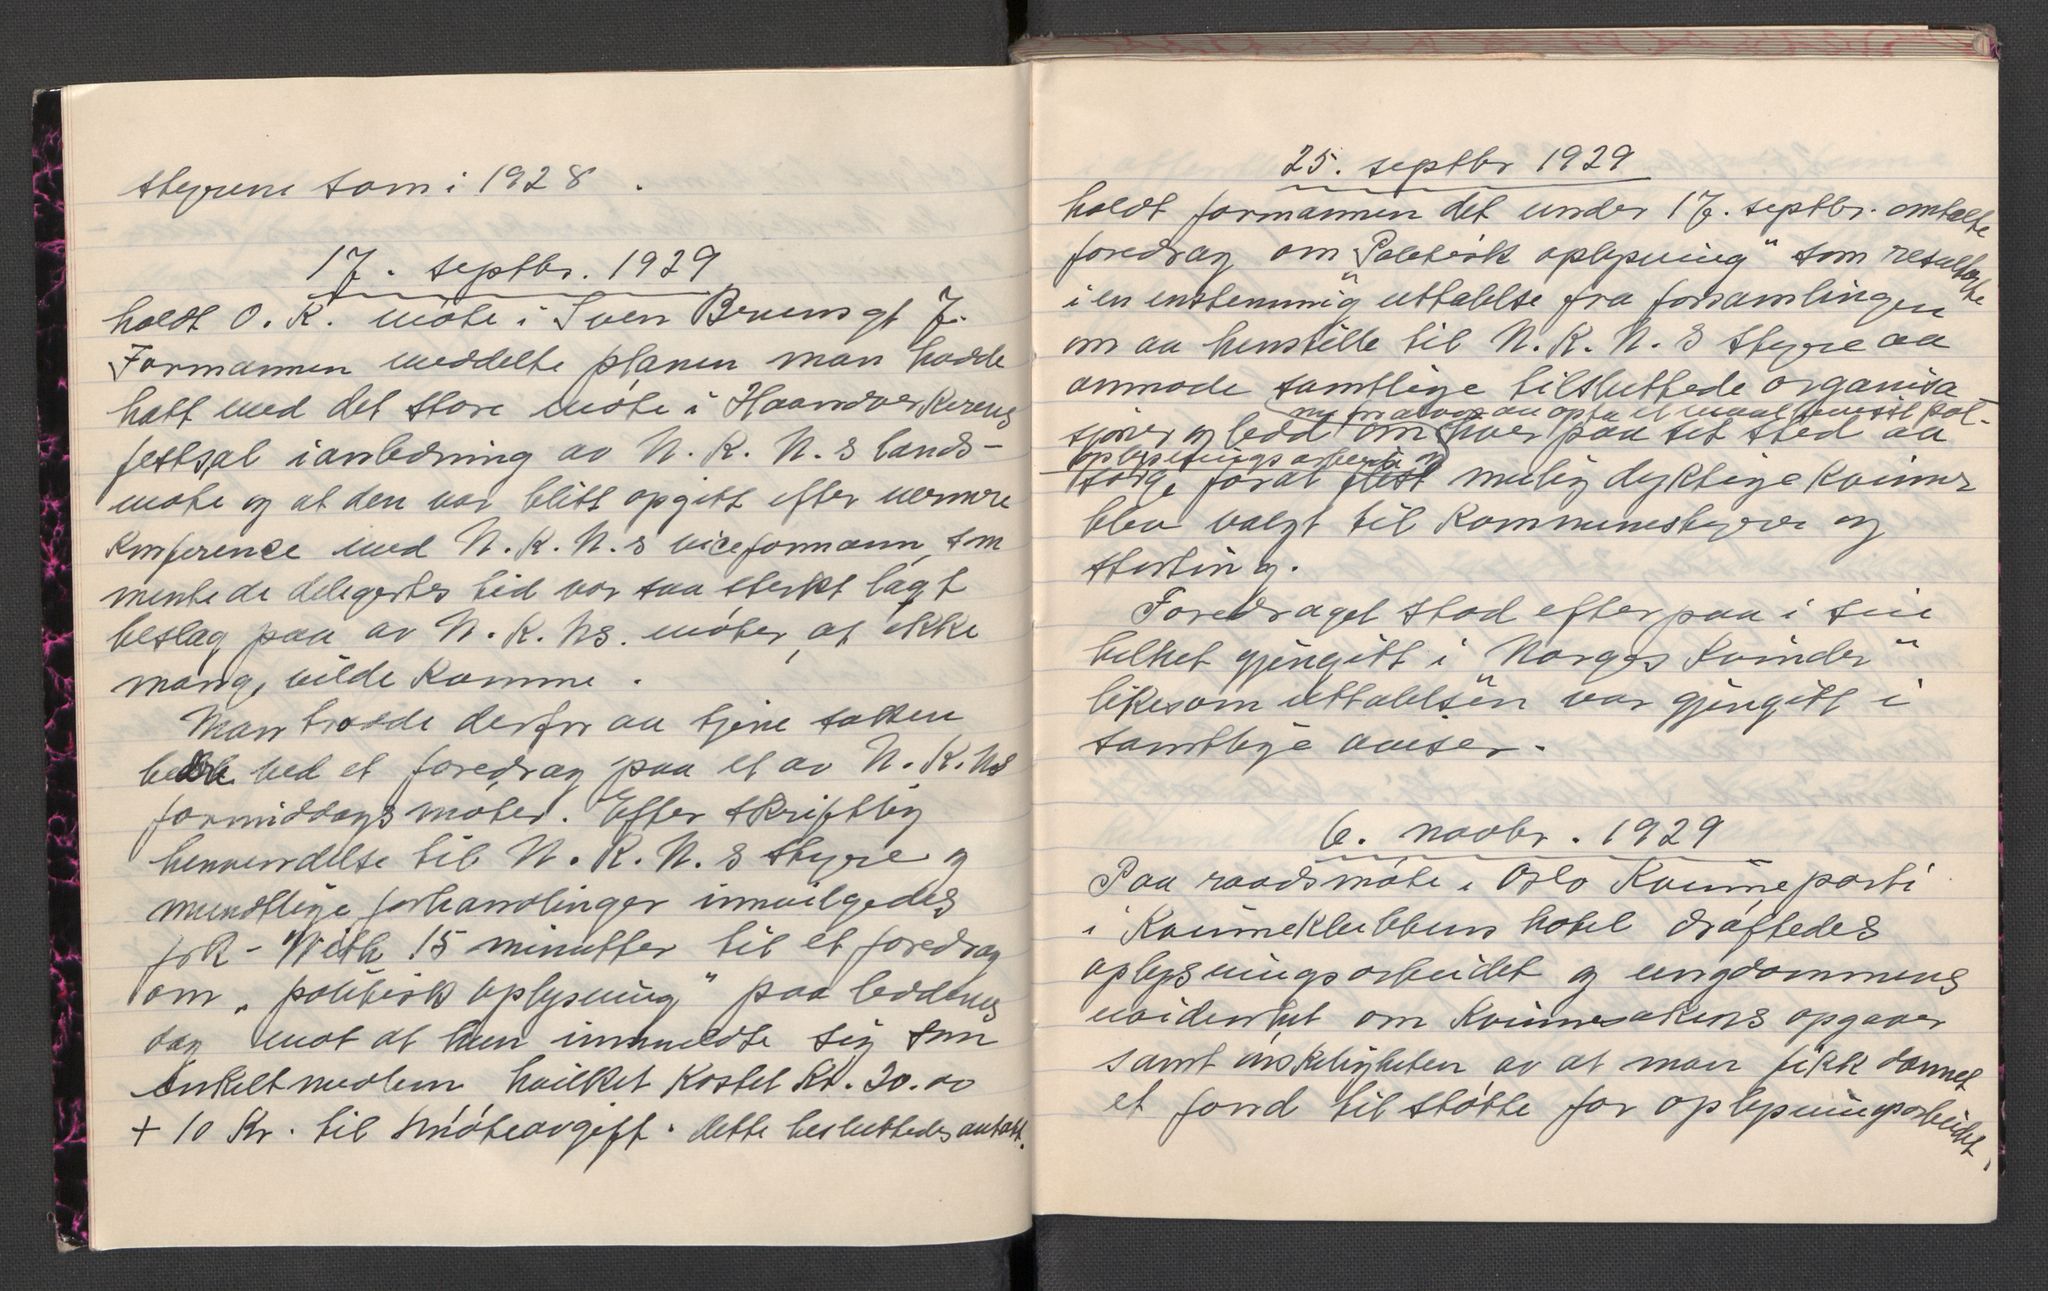 styrene som i 1928.
17. septbr. 1929
holdt O. K. møte i Sven Brunsgt 7.
Formannen meddelte planen man hadde
hatt med det store møte i Haandverkerens
festsal i anledning av N. K. N. s lands-
møte og at den var blitt opgitt efter nærmere
konference med N. K. N. s viceformann, som
mente de delegertes tid var saa sterkt lagt
beslag paa av N. K. Ns. møter, at ikke
mang, vilde komme.
Man trodde derfor aa tjene saken
bedre ved et foredrag paa et av N. K. Ns
formiddagsmøter. Efter skriftlig
henvendelse til N. K. N. s styre og
mundtlige forhandlinger innvilgedes
frk. With 15 minutter til et foredrag
om „politisk oplysning" paa leddenes
dag mot at hun innmeldte sig som
enkeltmedlem hvilket kostet kr. 20.00
+ 10 Kr. til møteavgift. Dette besluttedes antatt.
25. septbr 1929
holdt formannen det under 17. septbr. omtalte
foredrag om „Politisk oplysning" som resulterte
i en enstemmig uttalelse fra forsamlingen
om aa henstille til N. K. N. s styre aa
anmode samtlige tilsluttede organisa-
ny for alvor aa opta et maalbevisst pol-
sjoner og ledd om hver paa sit sted aa
oplysningsarbeide og
sørge for at flest mulig dyktige kvinner
blev valgt til kommunestyrer og
storting.
Foredraget stod efterpaa i sin
helhet gjengitt i „Norges Kvinder"
likesom uttalelsen var gjengitt i
samtlige aviser.
6. novbr. 1929
Paa raadsmøte i Oslo Kvinneparti
i Kvinneklubbens hotel drøftedes
oplysningsarbeidet og ungdommens
uvidenhet om kvinnesakens opgaver
samt ønskeligheten av at man fikk dannet
et fond til støtte for oplysningsarbeidet,